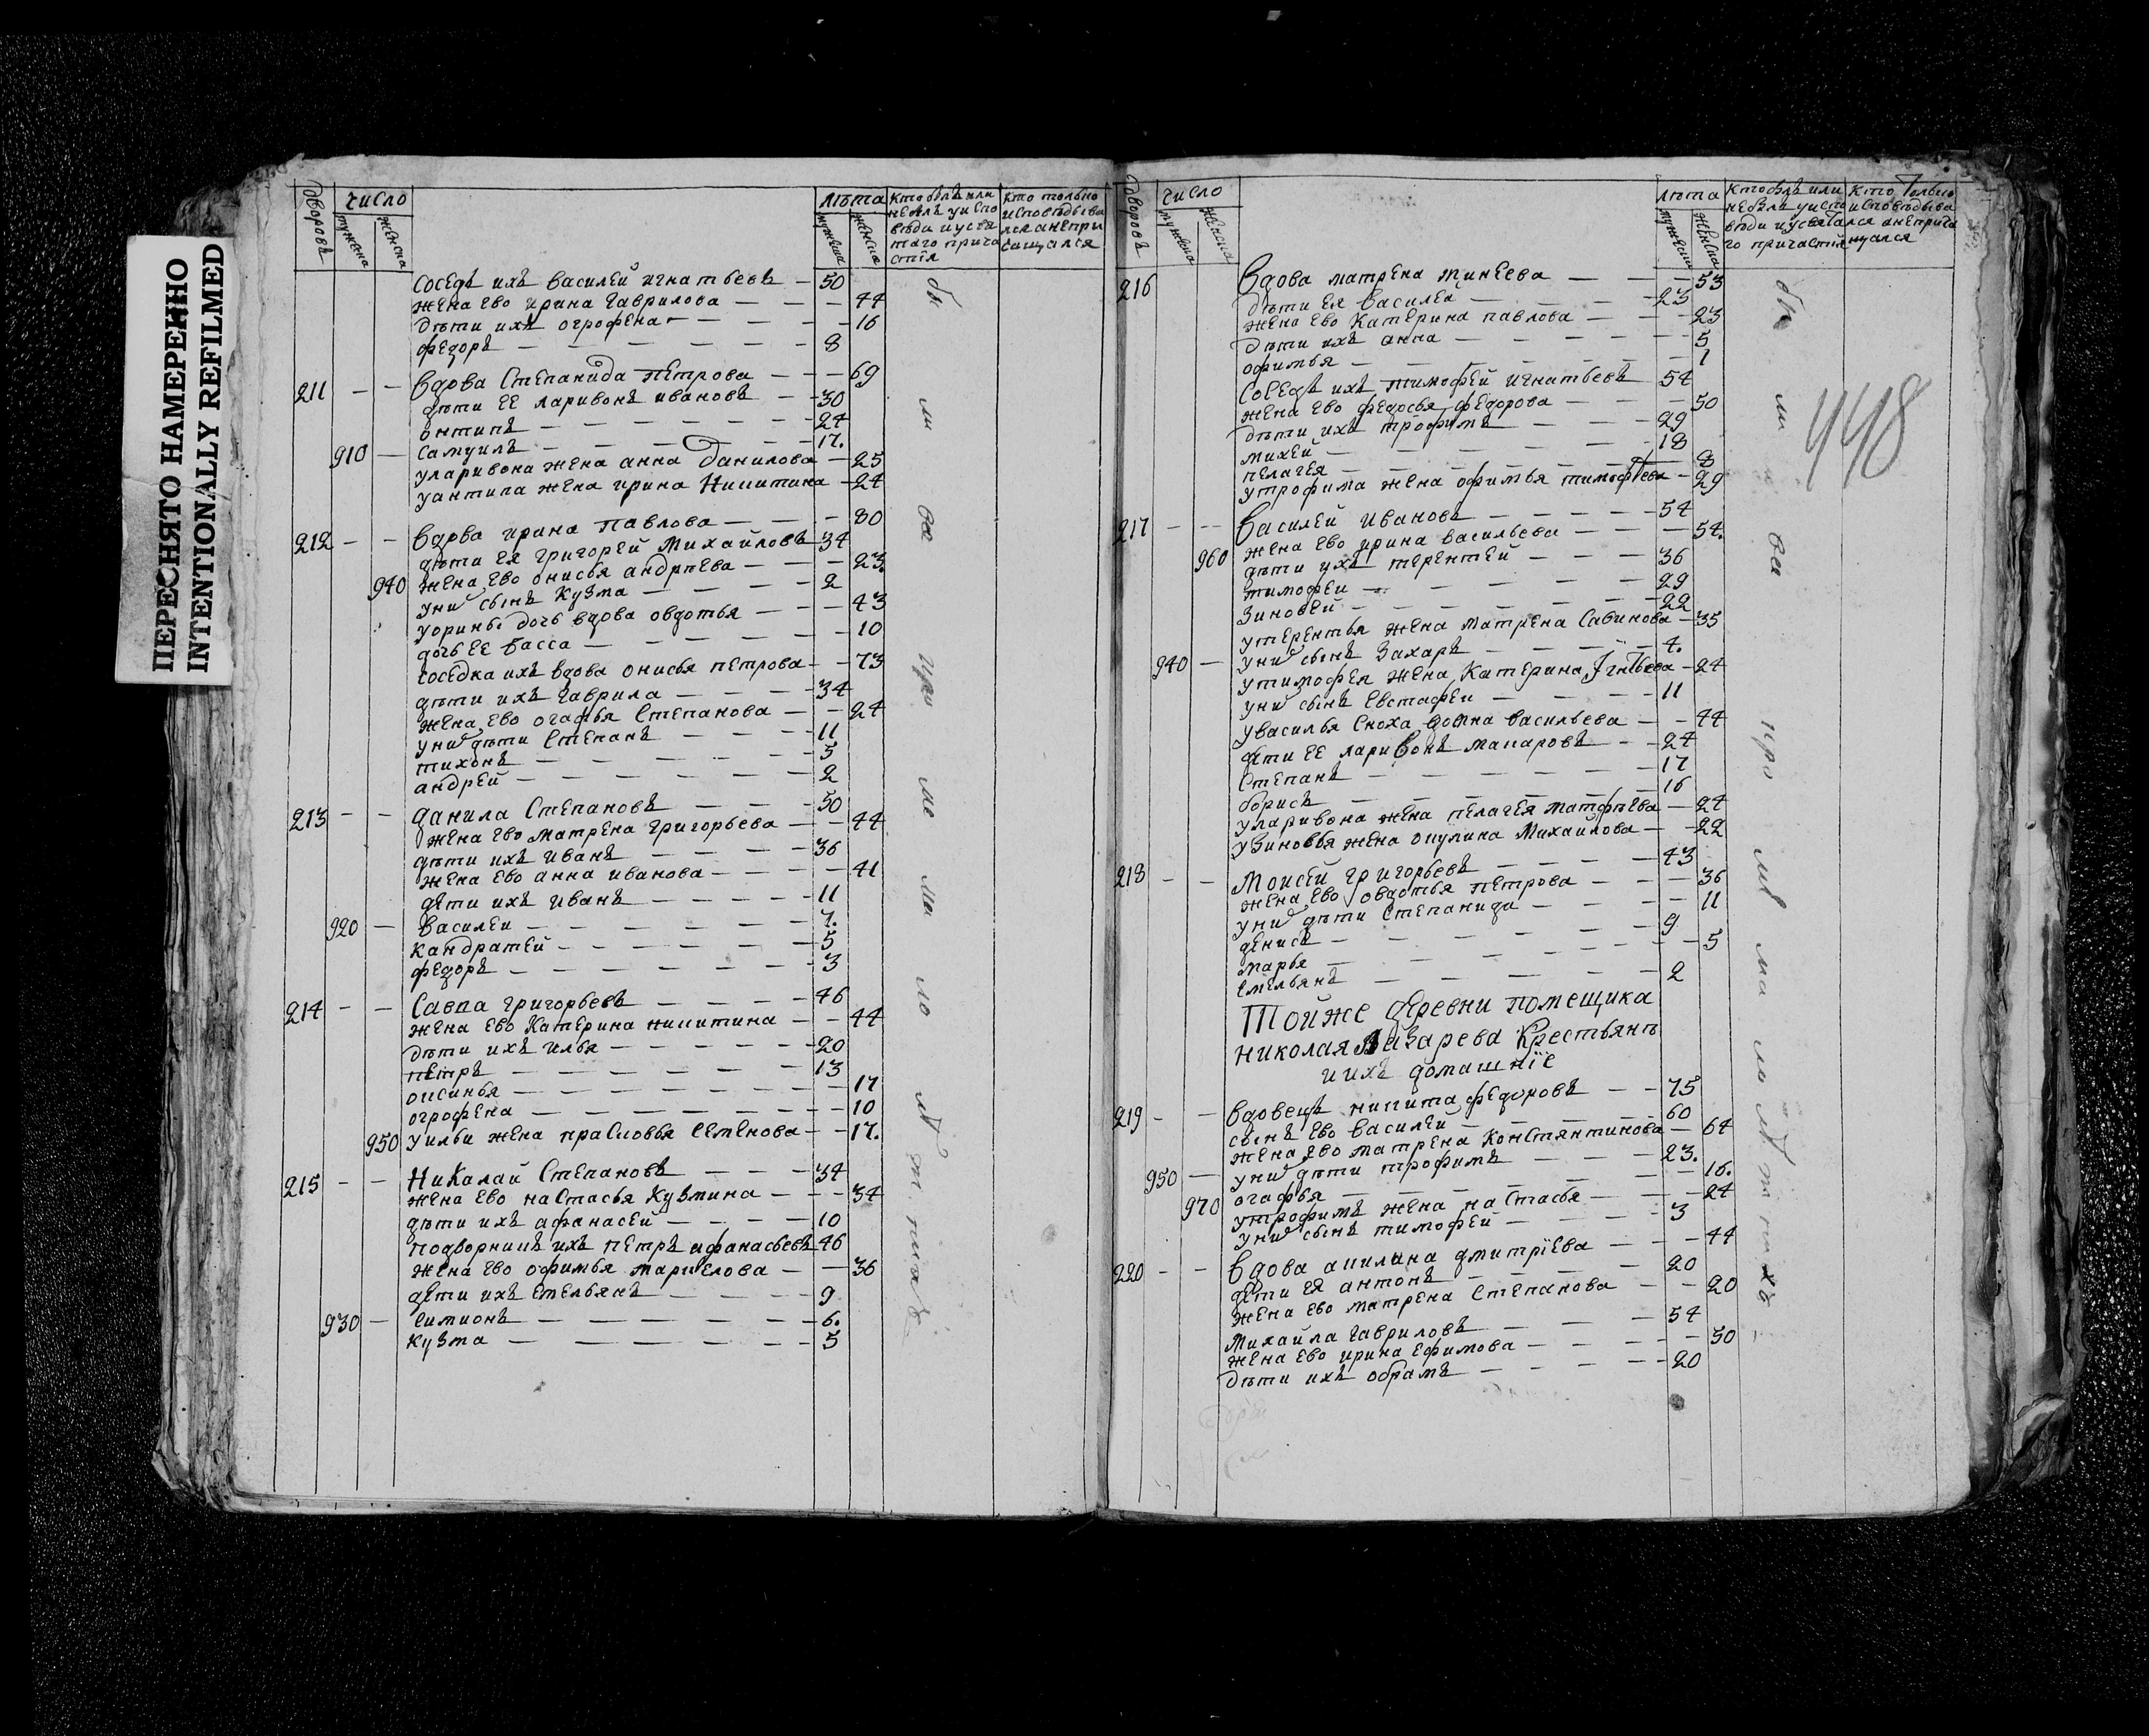 ПЕРЕСНЯТО НАМЕРЕННО
INTENTIONALLY REFILMED
дворовъ число лѣта кто былъ или кто только
мужеска женска мужеска женска
соседъ ихъ василей игнатьевъ — 50
жена ево ирина гаврилова — — — 44
дѣти ихъ огрофена — — — — 16
федоръ — — — — — — 8
211 — — вдова степанида петрова — — — 69
дѣти ее ларивонъ ивановъ — — 30
онтипъ — — — — — — — 24
910 — самуилъ — — — — — — 17.
уларивона жена анна данилова — 25
уантипа жена ирина никитина — 24
212 — — вдова ирина павлова — — — 80
дѣти ея григорей михайловъ — 34
940 жена ево онисья андрѣева — — — 23.
уних сынъ кузма — — — — 2
уорины дочь вдова овдотья — — — 43
дочь ее васса — — — — — 10
соседка ихъ вдова онисья петрова — — 73
дѣти ихъ гаврила — — — 34
жена ево огафья степанова — — 24
уних дѣти степанъ — — — 11
тихонъ — — — — — — 5
андрей — — — — — — 2
213 — — данила степановъ — — — 50
жена ево матрена григорьева — — 44
дѣти ихъ иванъ — — — — 36
жена ево анна иванова — — — — 41
дѣти ихъ иванъ — — — — — 11
920 — василей — — — — — — 7.
кандратей — — — — — — 5
федоръ — — — — — — — 3
214 — — савва григорьевъ — — — — 46
жена ево катерина никитина — — 44
дѣти ихъ илья — — — — — 20
петръ — — — — — — — 13
оксинья — — — — — — — 17
огрофена — — — — — — — 10
950 уильи жена прасковья семенова — — 17.
215 — — николай степановъ — — — 34
жена ево настасья кузмина — — — 34
дѣти ихъ афанасей — — — — 10
подворникъ ихъ петръ афанасьевъ 46
жена ево офимья маркелова — — 36
дѣти ихъ емельянъ — — — 9
930 — симионъ — — — — — — 6.
кузма — — — — — — 5
дворовъ число лѣта
мужеска женска мужеска женска
448
216 вдова матрена минеева — — — 53
дѣти ея василей — — — — 23
жена ево катерина павлова — — — 23
дѣти ихъ анна — — — — — 5
офимья — — — — — — 1
соседъ ихъ тимофей игнатьевъ 54
жена ево федосья федорова — — — 50
дѣти ихъ трофимъ — — — 29
михей — — — — — — 18
пелагея — — — — — — 8
утрофима жена офимья тимофѣева — 29
217 — — василей ивановъ — — — — 54
жена ево ирина васильева — — — 54.
960 дѣти ихъ терентей — — — 36
тимофей — — — — — 29
зиновей — — — — — — 22
утерентья жена матрена савинова — 35
уних сынъ захаръ — — — — 4.
940 — утимофея жена катерина — 24
уних сынъ евстафей — — — 11
увасилья сноха домна васильева — — 44
дѣти ее ларивонъ макаровъ — — 24
степанъ — — — — — — 17
борисъ — — — — — — 16
уларивона жена пелагея матфѣева — 24
узиновья жена окулина михайлова — — 22
218 — — моисей григорьевъ — — — — 43
жена ево овдотья петрова — — — 36
уних дѣти степанида — — — — 11
денисъ — — — — — — 9
марья — — — — — — — 5
емельянъ — — — — — — 2
тойже деревни помещика
николая лазарева крестьянъ
и ихъ домашніе
219 — — вдовецъ никита федоровъ — — 75
сынъ ево василей — — — — 60
жена ево матрена констянтинова — 64
950 — уних дѣти трофимъ — — — 23.
огафья — — — — — — — 16.
970 утрофима жена настасья — — — 24
уних сынъ тимофей — — — — 3
220 — — вдова акилина дмитріева — — — 44
дѣти ея антонъ — — — — 20
жена ево матрена степанова — — 20
михайла гавриловъ — — — 54
жена ево ирина ефимова — — — — 50
дѣти ихъ обрамъ — — — — 20